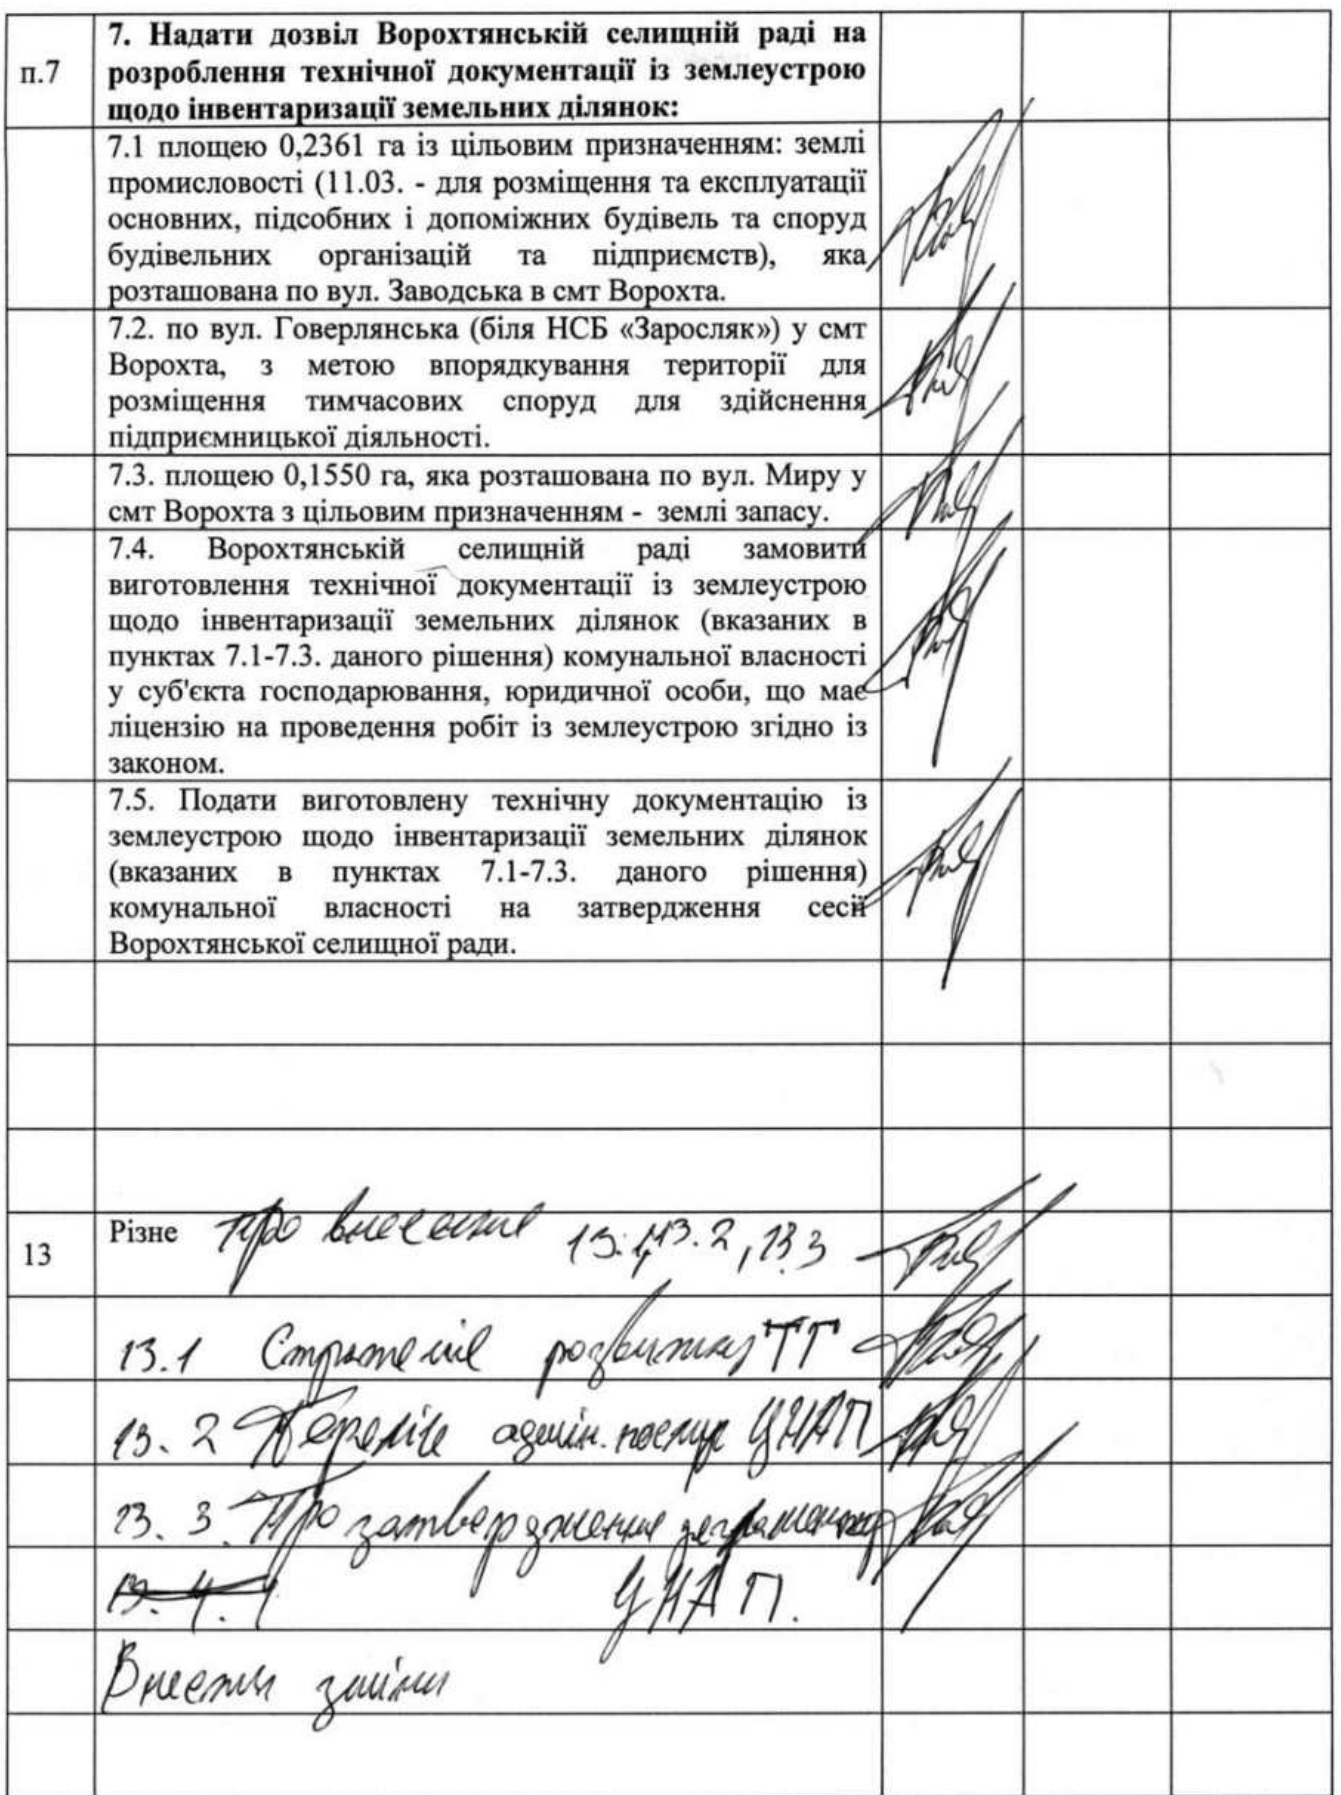 7. Надати дозвіл Ворохтянській селищній раді на
п.7 розроблення технічної документації із землеустрою
щодо інвентаризації земельних ділянок:
7.1 площею 0,2361 га із цільовим призначенням: землі
промисловості (11.03. - для розміщення та експлуатації
основних, підсобних і допоміжних будівель та споруд
будівельних організацій та підприємств), яка
розташована по вул. Заводська в смт Ворохта.
7.2. по вул. Говерлянська (біля НСБ «Заросляк») у смт
Ворохта, з метою впорядкування території для
розміщення тимчасових споруд для здійснення
підприємницької діяльності.
7.3. площею 0,1550 га, яка розташована по вул. Миру у
смт Ворохта з цільовим призначенням - землі запасу.
7.4. Ворохтянській селищній раді замовити
виготовлення технічної документації із землеустрою
щодо інвентаризації земельних ділянок (вказаних в
пунктах 7.1-7.3. даного рішення) комунальної власності
у суб'єкта господарювання, юридичної особи, що має
ліцензію на проведення робіт із землеустрою згідно із
законом.
7.5. Подати виготовлену технічну документацію із
землеустрою щодо інвентаризації земельних ділянок
(вказаних в пунктах 7.1-7.3. даного рішення)
комунальної власності на затвердження сесії
Ворохтянської селищної ради.
13 Різне Про внесення 13.1, 13.2, 13.3
13.1 Стратегія розвитку ТГ
13.2 Перелік адмін. послуг ЦНАП
13.3. Про затвердження регламенту
13.4. ЦНАП.
Внести зміни